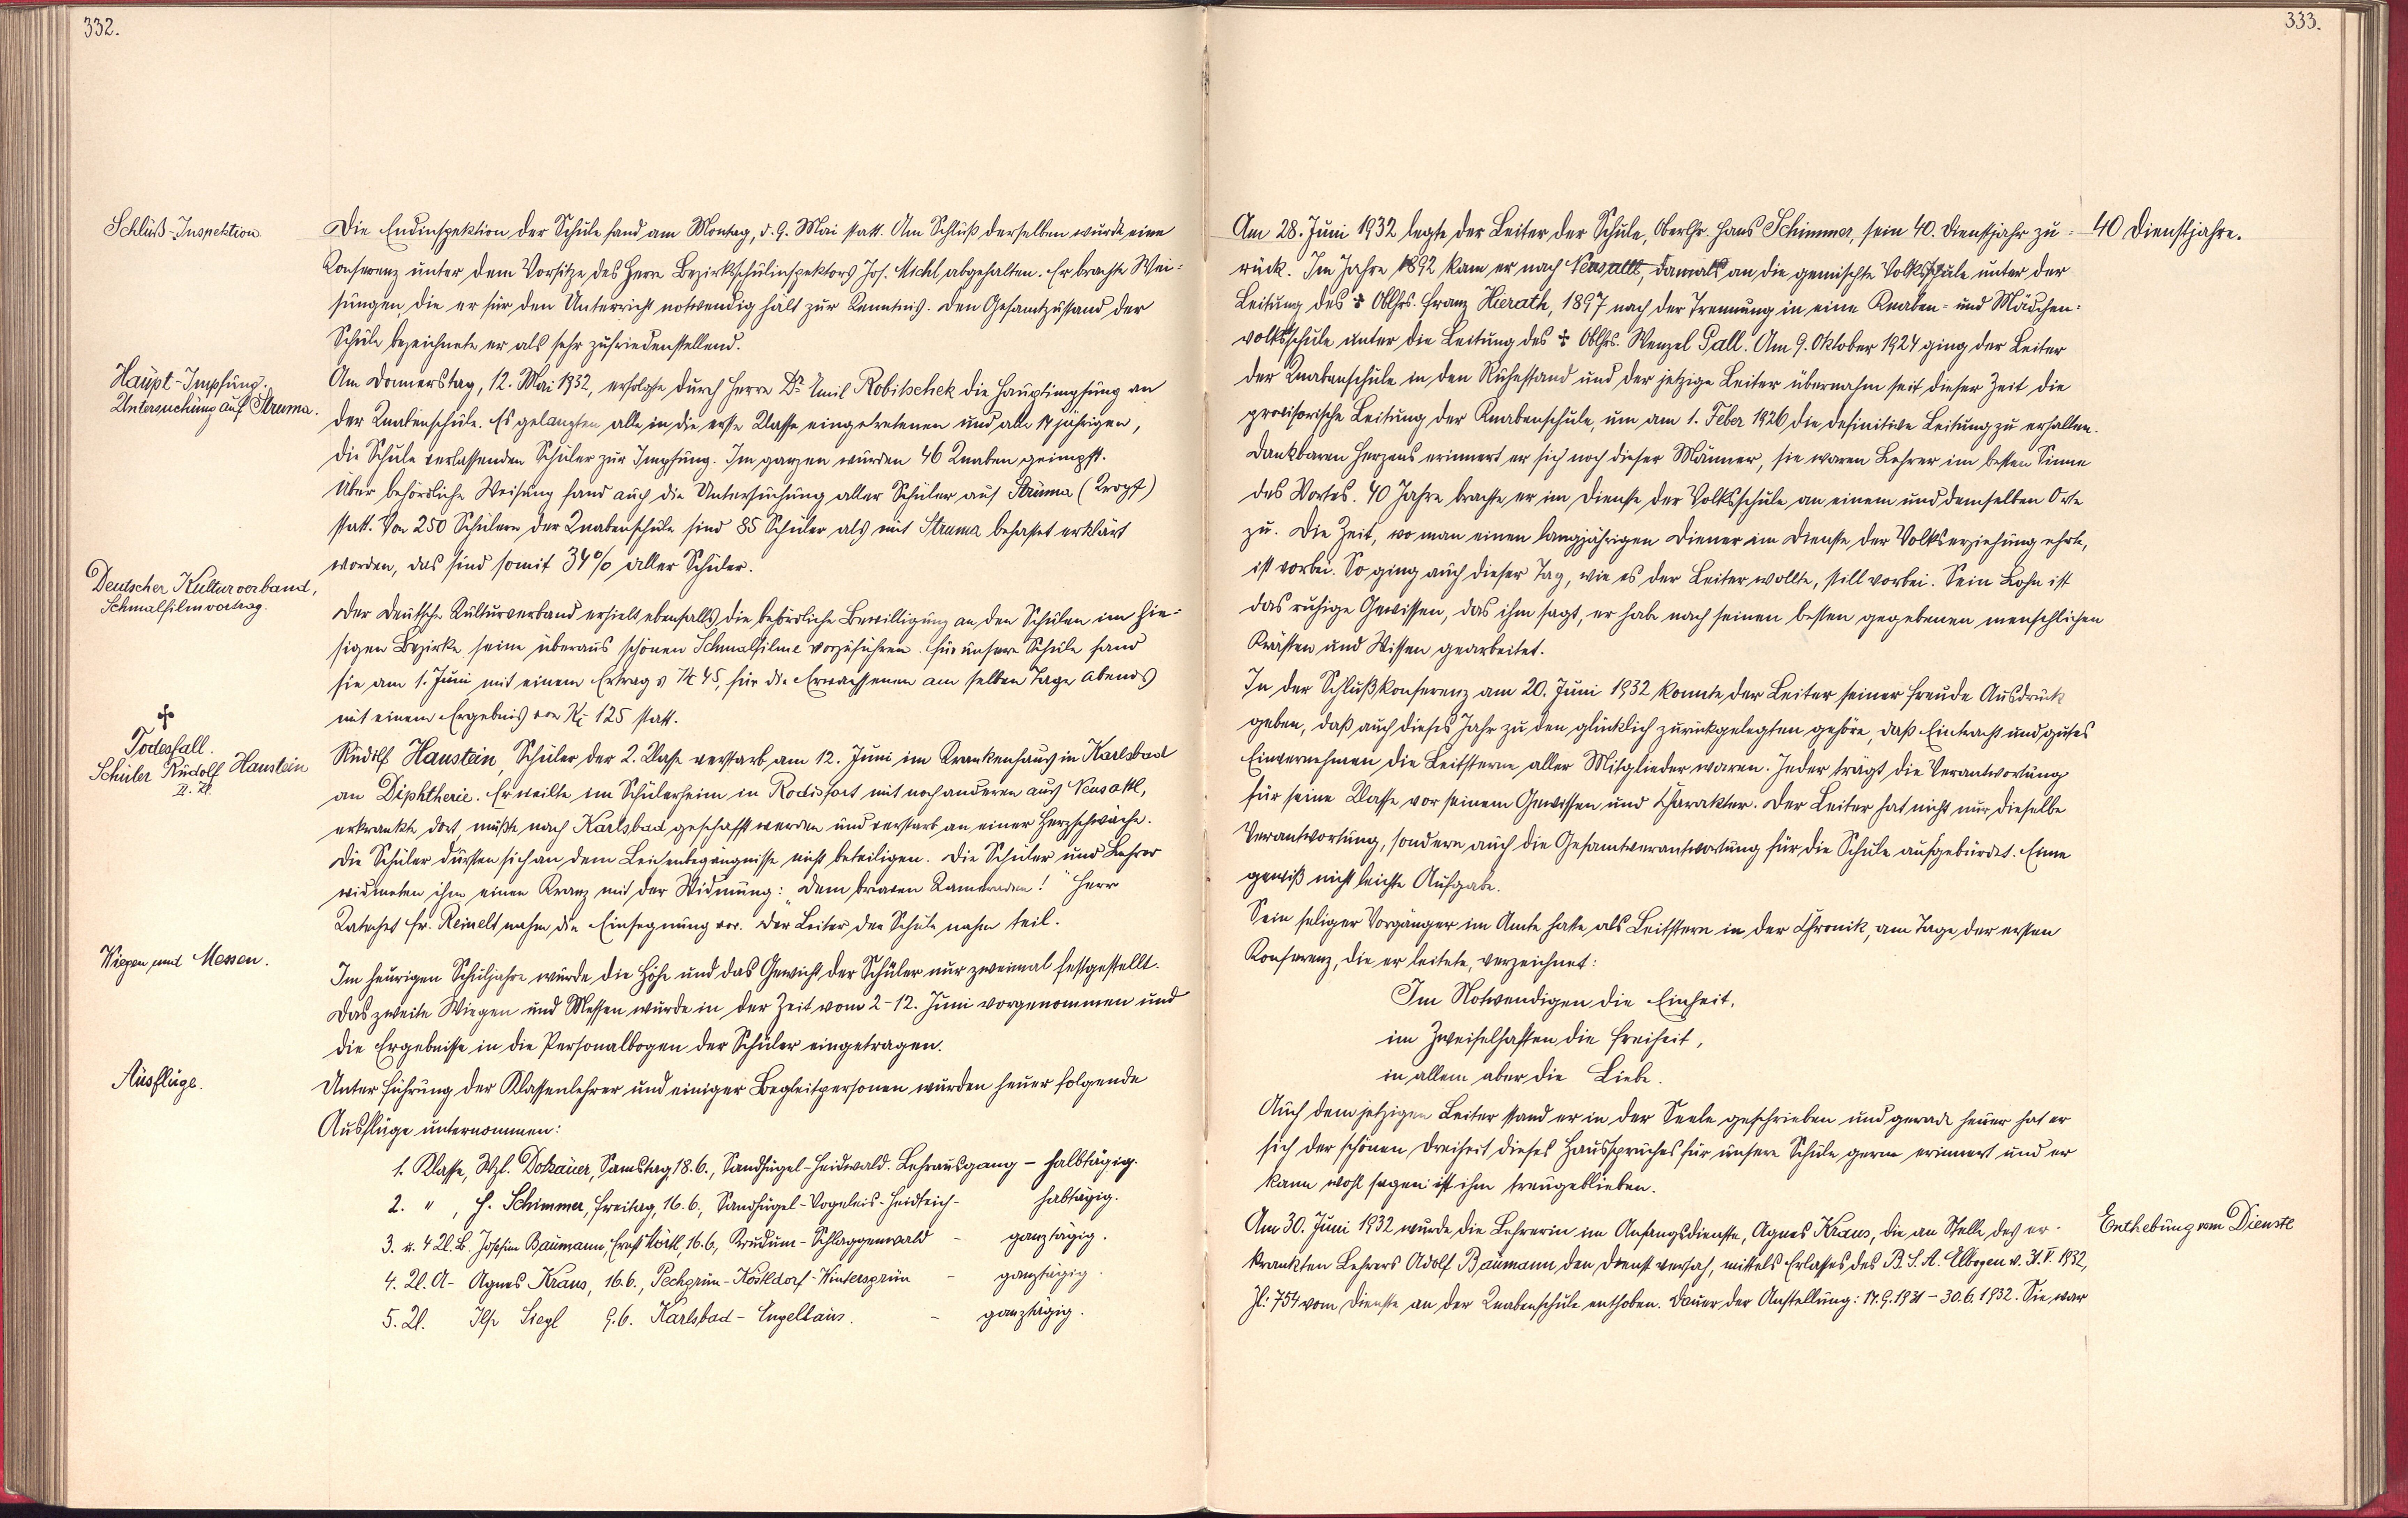 332.
Schluß-Inspektion.
Die Endinspektion der Schule fand am Montag, d. 9. Mai statt. Am Schluß derselben wurde eine
Konferenz unter dem Vorsitze des Herrn Bezirksschulinspektors Jos. Michl abgehalten. Er brachte Wei-
sungen, die er für den Unterricht notwendig hält zur Kenntnis. Den Gesamtzustand der
Schule bezeichnete er als sehr zufriedenstellend.
Haupt-Impfung.
Untersuchung auf Struma.
Am Donnerstag, 12. Mai 1932, erfolgte durch Herrn Dr. Emil Robitschek die Hauptimpfung an
der Knabenschule. Es gelangten alle in die erste Klasse eingetretenen und alle 14 jährigen,
die Schule verlassenden Schüler zur Impfung. Im ganzen wurden 46 Knaben geimpft.
Über behördliche Weisung fand auch die Untersuchung aller Schüler auf Struma (Kropf)
statt. Von 250 Schülern der Knabenschule sind 85 Schüler als mit Struma behaftet erklärt
worden, das sind somit 34% aller Schüler.
Deutscher Kulturverband,
Schmalfilmvortrag.
Der Deutsche Kulturverband erhielt ebenfalls die behördliche Bewilligung an den Schulen im hie-
sigen Bezirke seine überaus schönen Schmalfilme vorzuführen. Für unsere Schule fand
sie am 1. Juni mit einem Ertrag v Kč 45, für die Erwachsenen am selben Tage abends
mit einem Ergebnis von Kč 125 statt.
Todesfall.
Schüler Rudolf Haustein
II. Kl.
Rudolf Haustein, Schüler der 2. Klasse verstarb am 12. Juni im Krankenhaus in Karlsbad
an Diphtherie. Er weilte im Schülerheim in Rodisfort mit noch anderen aus Neusattl,
erkrankte dort, mußte nach Karlsbad geschafft werden und verstarb an einer Herzschwäche.
Die Schüler durften sich an dem Leichenbegängnisse nicht beteiligen. Die Schüler und Lehrer
widmeten ihm einen Kranz mit der Widmung: „Dem braven Kameraden!" Herr
Katechet Fr. Reinelt nahm die Einsegnung vor. Der Leiter der Schule nahm teil.
Wiegen und Messen.
Im heurigen Schuljahre wurde die Höhe und das Gewicht der Schüler nur zweimal festgestellt.
Das zweite Wiegen und Messen wurde in der Zeit vom 2-12. Juni vorgenommen und
die Ergebnisse in die Personalbogen der Schüler eingetragen.
Ausflüge.
Unter Führung der Klassenlehrer und einiger Begleitpersonen wurden heuer folgende
Ausflüge unternommen:
1. Klasse, Wzl. Dotzauer, Samstag, 18.6., Sandhügel-Heidwald. Lehrausgang - halbtägig.
2. " , H. Schimmer, Freitag, 16.6., Sandhügel-Vogeleis-Heidteich - halbtägig.
3. u. 4 Kl. B. Josefine Baumann, Ernst Hörtl, 16.6, Krudum-Schlaggenwald - ganztägig.
4. Kl. A - Agnes Kraus, 16.6., Pechgrün-Köstldorf-Wintersgrün - ganztägig.
5. Kl. Ilse Siegl 9.6. Karlsbad - Engelhaus. - ganztägig.
333.
Am 28. Juni 1932 legte der Leiter der Schule, Oberlhr. Hans Schimmer, sein 40. Dienstjahr zu-
40 Dienstjahre.
rück. Im Jahre 1892 kam er nach Neusattl, damals an die gemischte Volksschule unter der
Leitung des ‡ Oblhrs. Franz Hierath, 1897 nach der Trennung in eine Knaben- und Mädchen-
volksschule unter die Leitung des ‡ Oblhrs. Wenzel Gall. Am 9. Oktober 1924 ging der Leiter
der Knabenschule in den Ruhestand und der jetzige Leiter übernahm seit dieser Zeit die
provisorische Leitung der Knabenschule, um am 1. Feber 1926 die definitive Leitung zu erhalten.
Dankbaren Herzens erinnert er sich noch dieser Männer, sie waren Lehrer im besten Sinne
des Wortes. 40 Jahre brachte er im Dienste der Volksschule an einem und demselben Orte
zu. Die Zeit, wo man einen langjährigen Diener im Dienste der Volkserziehung ehrte,
ist vorbei. So ging auch dieser Tag, wie es der Leiter wollte, still vorbei. Sein Lohn ist
das ruhige Gewissen, das ihm sagt, er habe nach seinen besten gegebenen menschlichen
Kräften und Wissen gearbeitet.
In der Schlußkonferenz am 20. Juni 1932 konnte der Leiter seiner Freude Ausdruck
geben, daß auch dieses Jahr zu den glücklich zurückgelegten gehöre, daß Eintracht und gutes
Einvernehmen die Leitsterne aller Mitglieder waren. Jeder trägt die Verantwortung
für seine Klasse vor seinem Gewissen und Charakter. Der Leiter hat nicht nur dieselbe
Verantwortung, sondern auch die Gesamtverantwortung für die Schule aufgebürdet. Eine
gewiß nicht leichte Aufgabe.
Sein seliger Vorgänger im Amte hatte als Leitstern in der Chronik, am Tage der ersten
Konferenz, die er leitete, verzeichnet:
Im Notwendigen die Einheit,
im Zweifelhaften die Freiheit,
in allem aber die Liebe.
Auch dem jetzigen Leiter stand er in der Seele geschrieben und gerade heuer hat er
sich der schönen Dreiheit dieses Hausspruches für unsere Schule gerne erinnert und er
kann wohl sagen ist ihm treugeblieben.
Am 30. Juni 1932 wurde die Lehrerin im Anfangsdienste, Agnes Kraus, die an Stelle des er-
Enthebung vom Dienste
krankten Lehrers Adolf Baumann den Dienst versah, mittels Erlasses des B.S.A. Elbogen v. 31.V. 1932,
Zl: 754 vom Dienste an der Knabenschule enthoben. Dauer der Anstellung: 17.9.1931 - 30.6.1932. Sie war